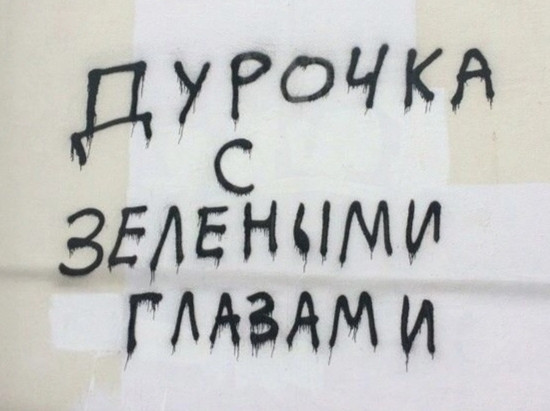 ДУРОЧКА
С
ЗЕЛЕНЫМИ
ГЛАЗАМИ